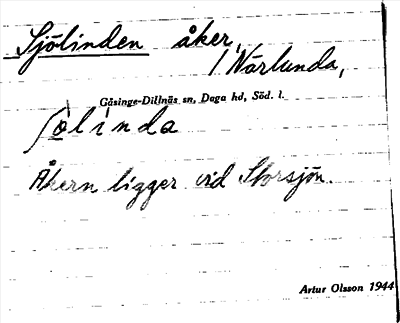 Sjölinden åker,
/ Närlunda,
Gåsinge-Dillnäs sn, Daga hd, Söd. l.
Åkern ligger vid Storsjön.
Artur Olsson 1944